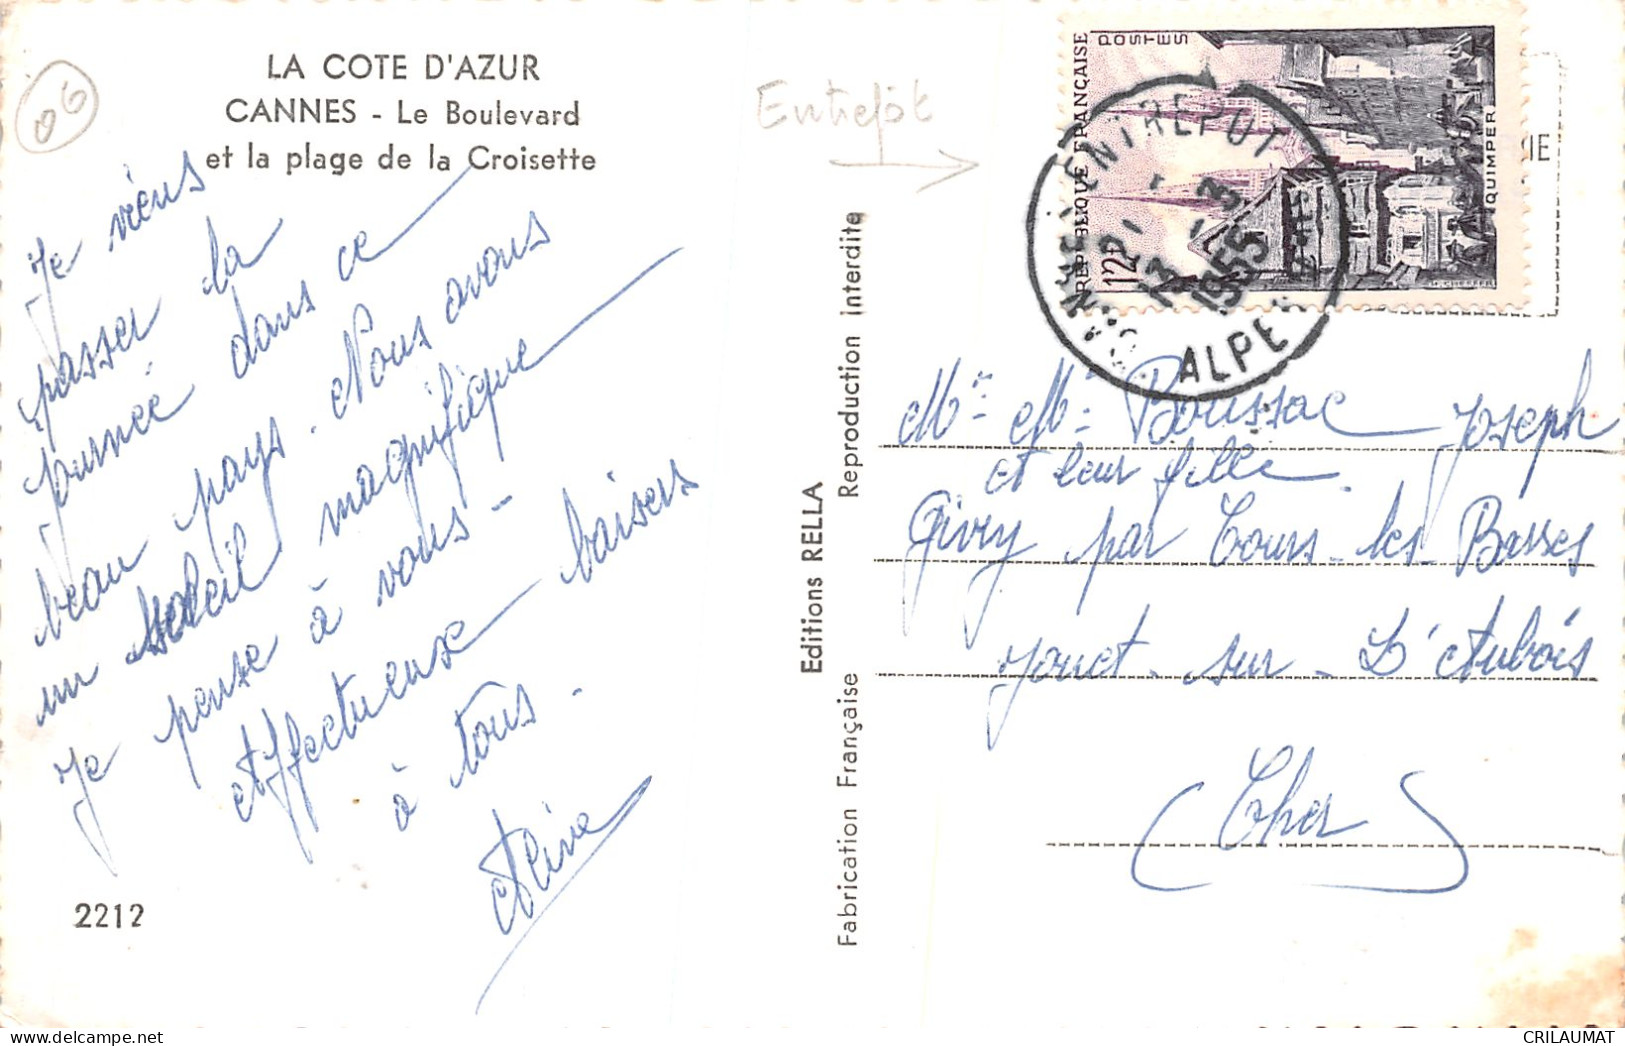 06
LA COTE D'AZUR
CANNES - Le Boulevard
et la plage de la Croisette
Je viens
passer la
journée dans ce
beau pays. Nous avons
un soleil magnifique
Je pense à vous -
Affectueux baisers
à tous -
2212
Editions RELLA
Reproduction Interdite
Fabrication Française
Entrepôt
REPUBLIQUE FRANÇAISE
POSTES
12F
QUIMPER
CANNES ENTREPOT
13 - 3
1955
ALPES
IE
Mr Me Boussac Joseph
et leur fille.
Givry par Cours-les-Basses
Jouet-sur-L'Aubois
(Cher)
CRILAUMAT